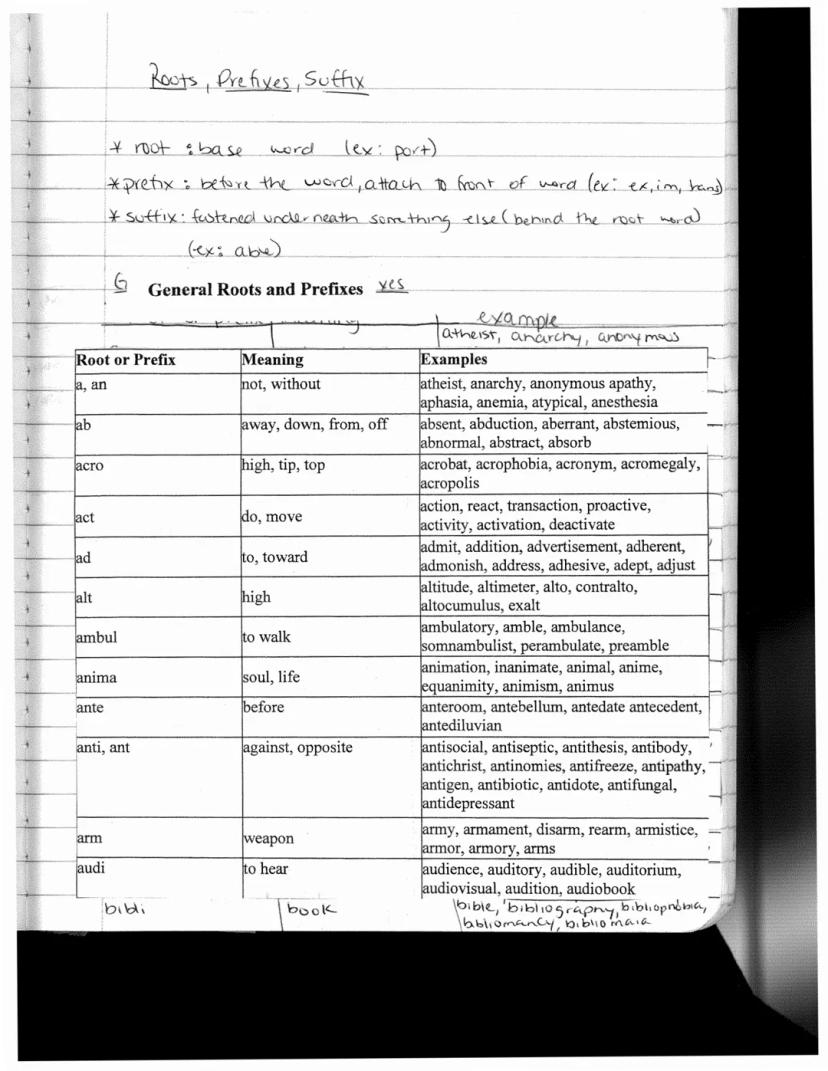 Roots, Prefixes, Suffix
* root : base word (ex: port)
* prefix : before the word, attach to front of word (ex: ex, im, trans)
* suffix : fastened underneath something else (behind the root word)
(ex: able)
G General Roots and Prefixes yes
example
atheist, anarchy, anonymous
Root or Prefix Meaning Examples
a, an not, without atheist, anarchy, anonymous apathy,
aphasia, anemia, atypical, anesthesia
ab away, down, from, off absent, abduction, aberrant, abstemious,
abnormal, abstract, absorb
acro high, tip, top acrobat, acrophobia, acronym, acromegaly,
acropolis
act do, move action, react, transaction, proactive,
activity, activation, deactivate
ad to, toward admit, addition, advertisement, adherent,
admonish, address, adhesive, adept, adjust
alt high altitude, altimeter, alto, contralto,
altocumulus, exalt
ambul to walk ambulatory, amble, ambulance,
somnambulist, perambulate, preamble
anima soul, life animation, inanimate, animal, anime,
equanimity, animism, animus
ante before anteroom, antebellum, antedate antecedent,
antediluvian
anti, ant against, opposite antisocial, antiseptic, antithesis, antibody,
antichrist, antinomies, antifreeze, antipathy,
antigen, antibiotic, antidote, antifungal,
antidepressant
arm weapon army, armament, disarm, rearm, armistice,
armor, armory, arms
audi to hear audience, auditory, audible, auditorium,
audiovisual, audition, audiobook
bibli book bible, bibliography, bibliophobia,
bibliomancy, bibliomaia